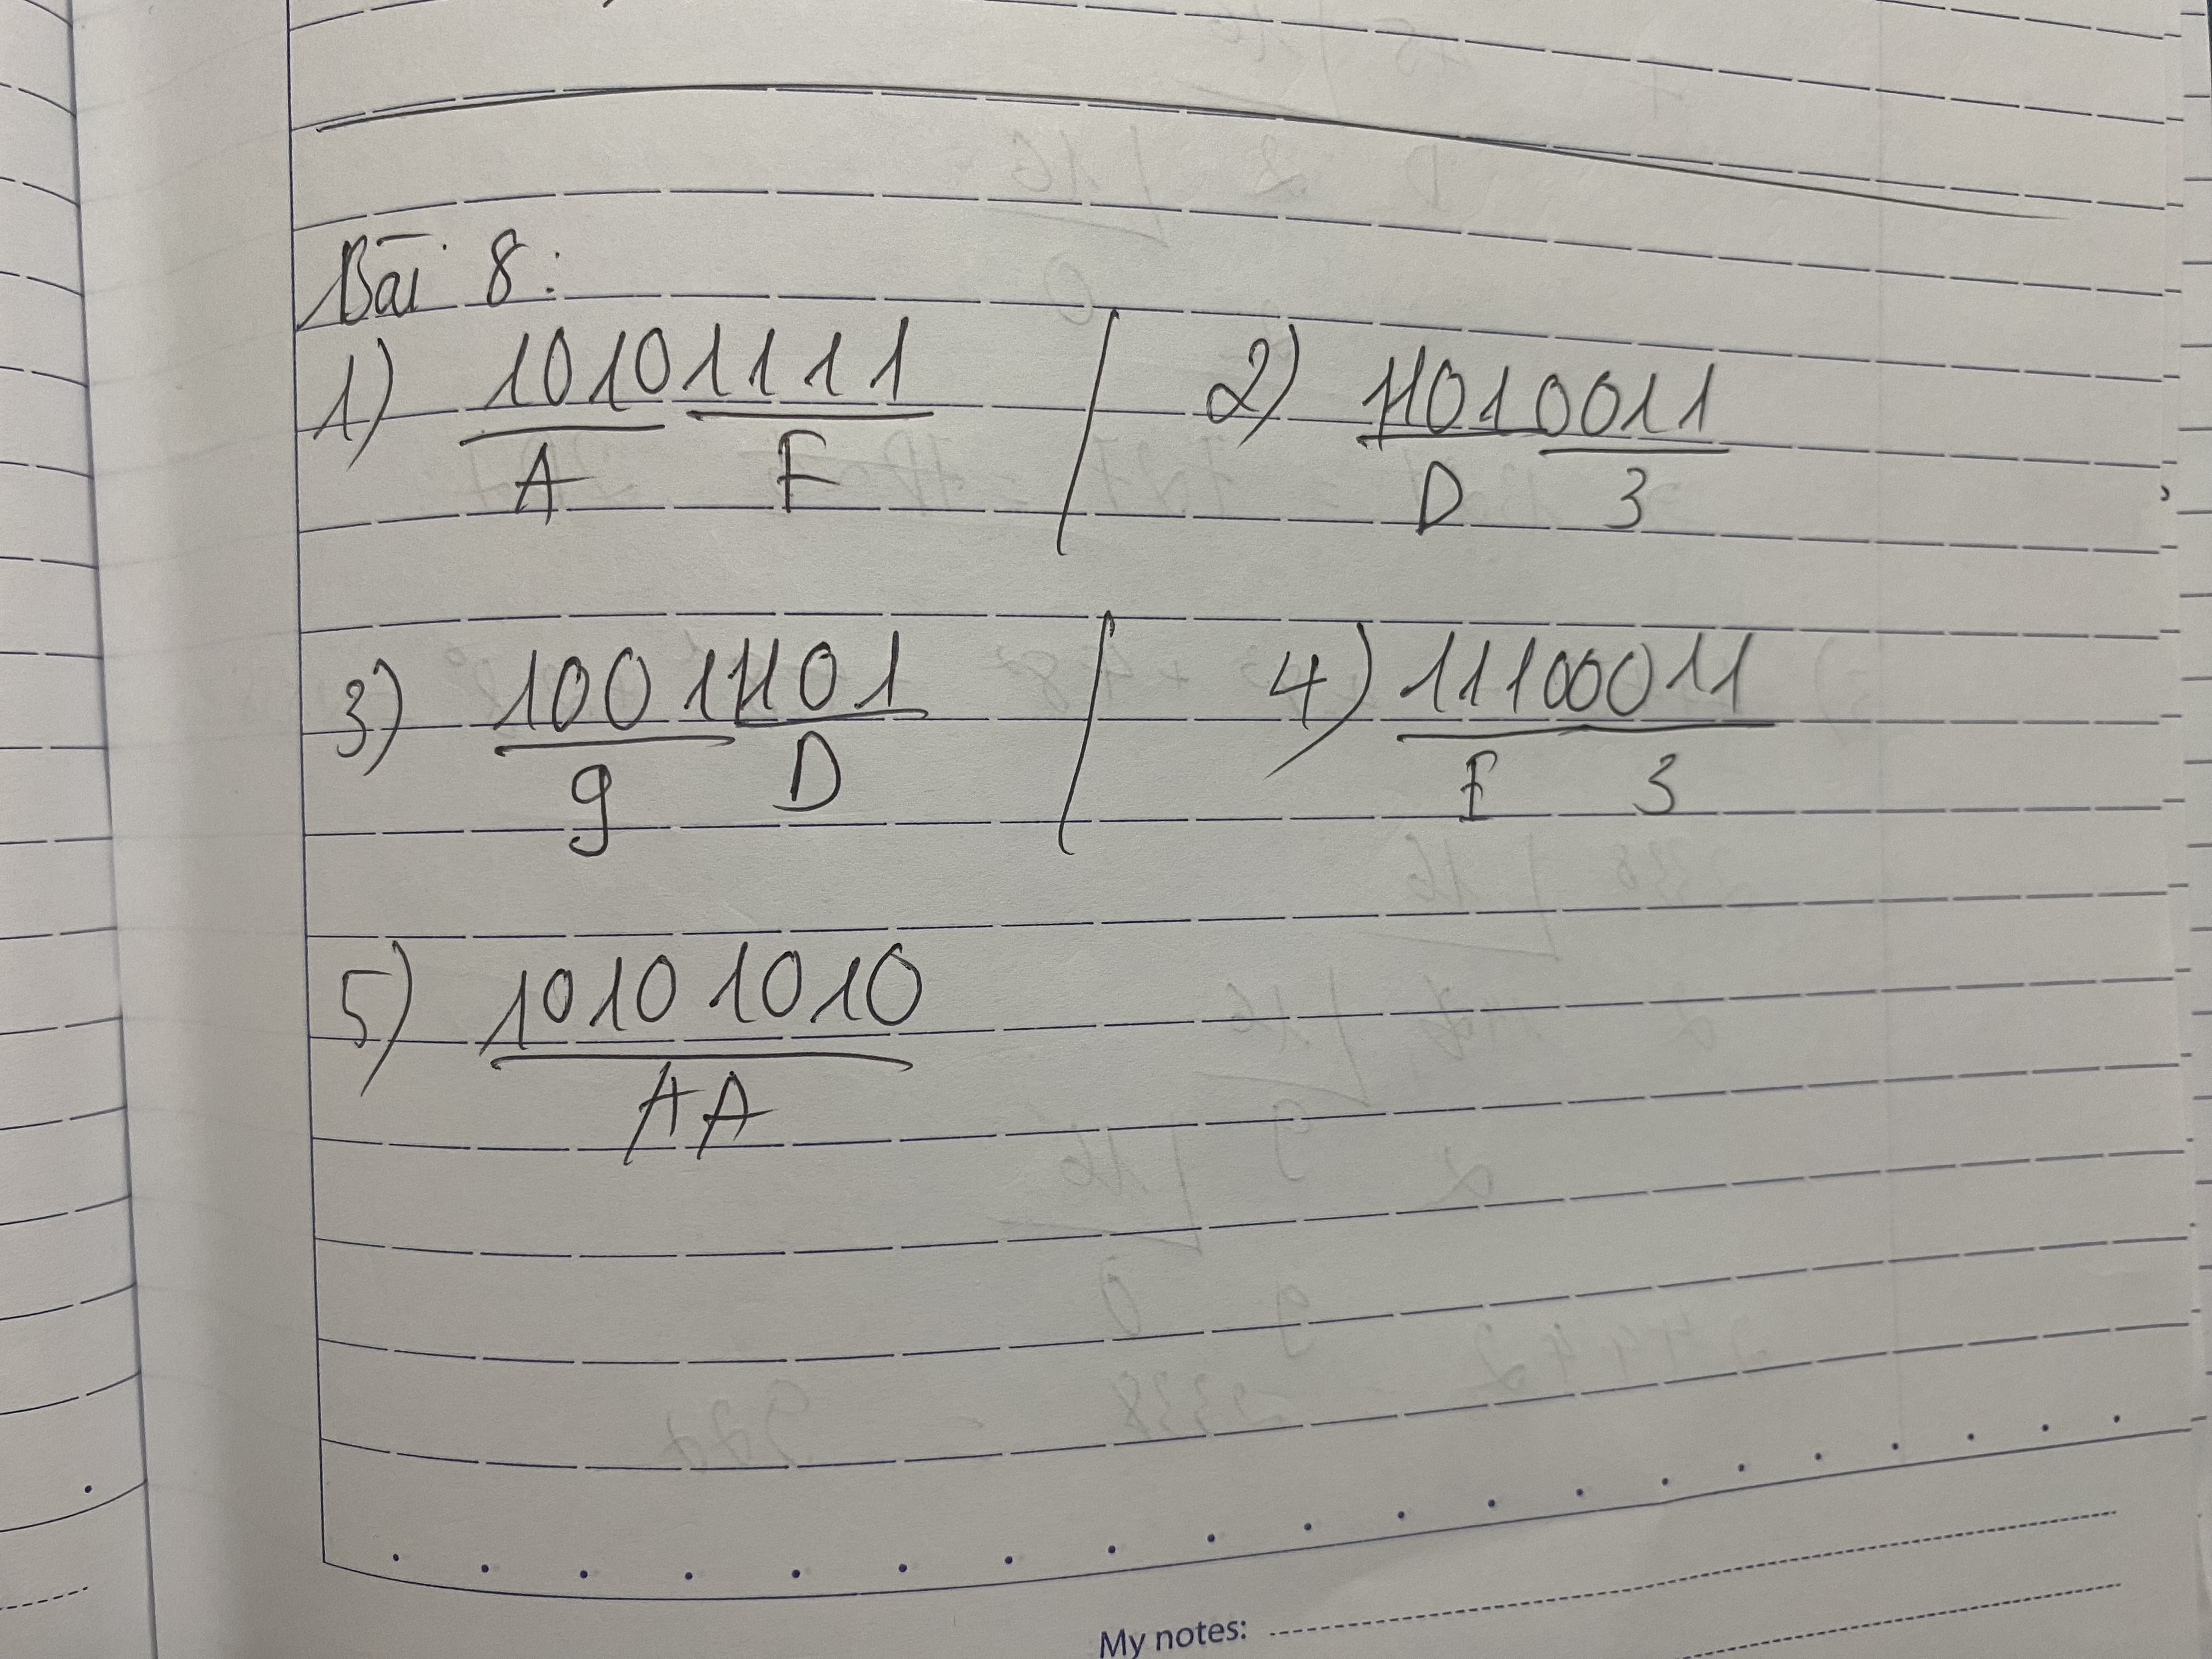 Bài 8:
1) 10101111 / 2) 11010011
A F D 3
3) 10011101 / 4) 11110011
9 D F 3
5) 10101010
AA
My notes: